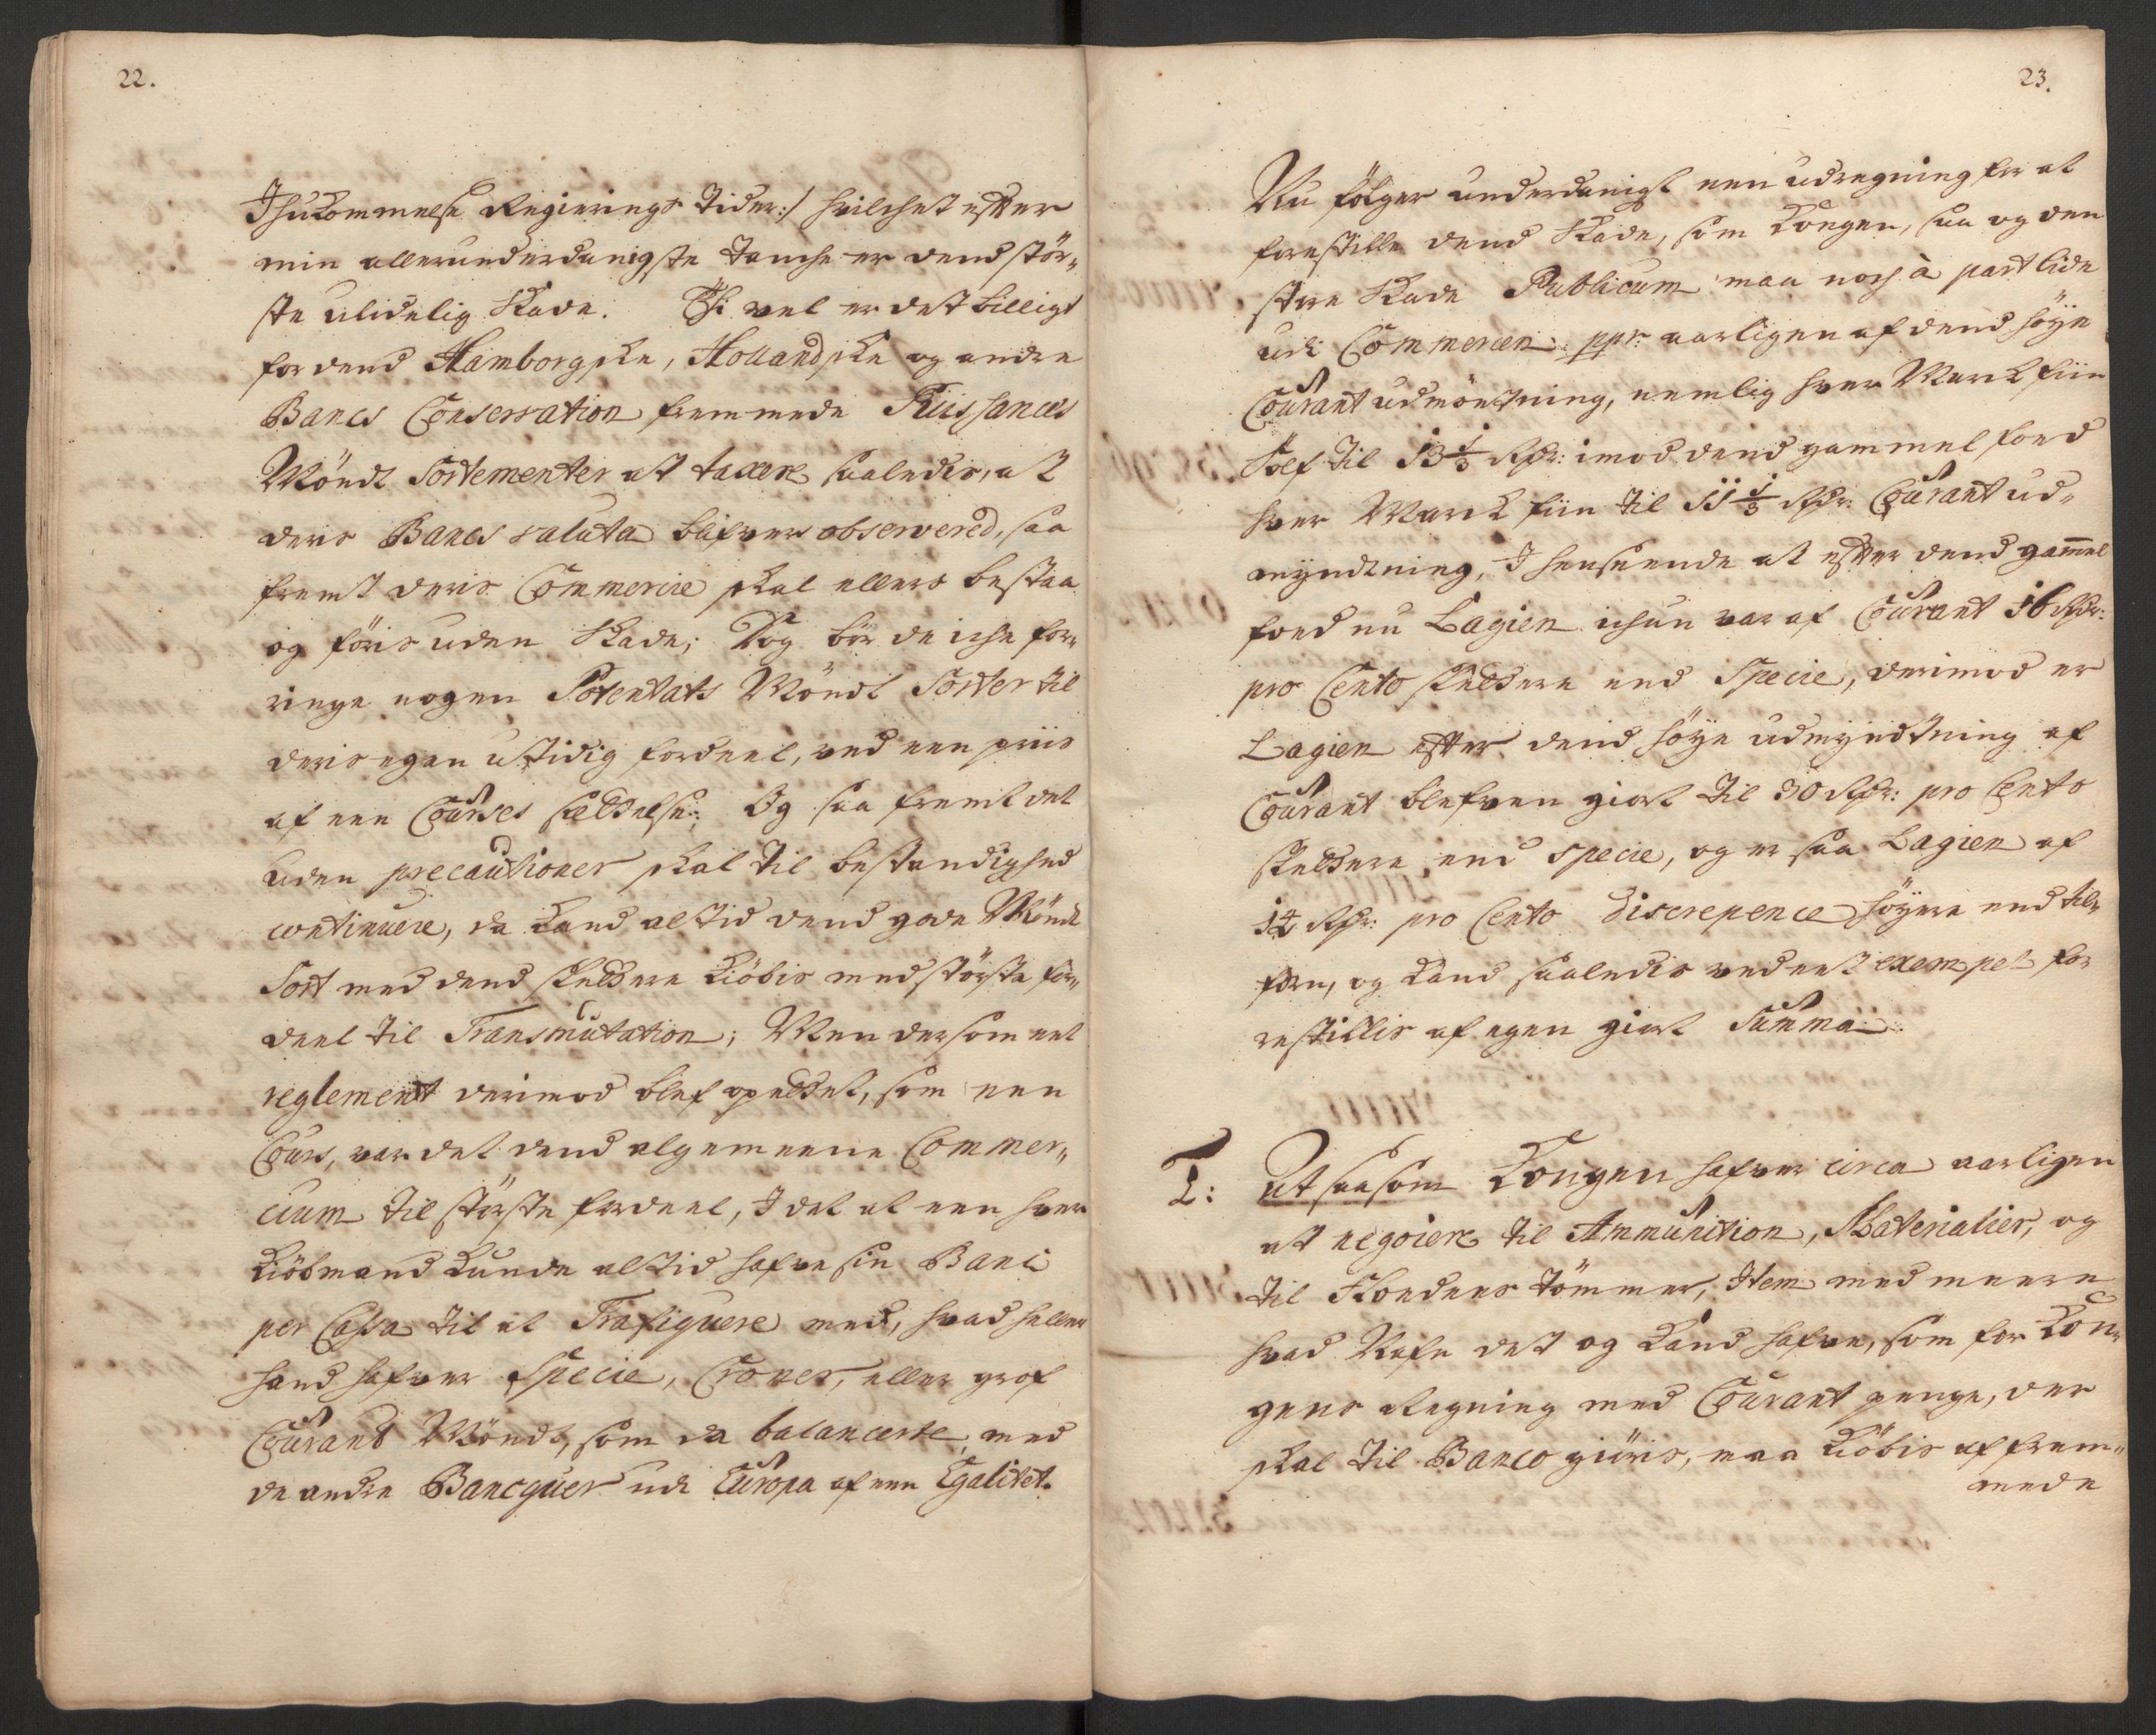 22.
Ihukommelse Regierings tider:/ hvilchet efter
min allerunderdanigste tanche er dend stör„
ste ulidelig Skade. Thi vel er det billigt
for dend Hamborgske, Hollandske og andre
Bancs Conservation fremmede Puissances
Möndt Sortementer at taxere saaledes, at
deris Bancs valuta blifver observered, saa
fremt deris Commercie skal ellers bestaa
og föris uden Skade; Dog bör de iche for„
ringe nogen Potentats Möndt Sorter til
deris egen utidig fordeel, ved een priis
af een Courses settelse; Og saa fremt det
uden precautioner skal til bestandighed
continuere, da kand altid dend gode Möndt
Sort med dend slettere kiöbis med störste for„
deel til Transmutation; Men dersom eet
reglement derimod blef opsettet, som een
Cours, var det dend algemeene Commer„
cium til störste fordeel, I det at een hver
Kiöbmand kunde altid hafve sin Banc
per Cassa til at Trafiquere med, hvad heller
hand hafver Specie, Croner, eller grof
Courant Möndt, som da balancerte med
de andre Bancquer udi Europa af een Egalitet.
23.
Nu fölger underdanigst een udregning for at
forestille dend Skade, som Kongen, saa og den
störe Skade Publicum maa noch à part lide
udi Commercien ppr: aarligen af dend höye
Courant udmöntning, nemlig hver Marck fiin
Sölf til 13 1/3 Rdr: imod dend gammel foed
hver Marck fiin til 11 1/3 Rdr: Courant ud„
myndtning, I henseende at efter dend gam̅el
foed nu Lagien ichun var af Courant 16 Rdr:
pro Cento slettere end Specie, derimod er
Lagien efter dend höye udmyndtning af
Courant blefven giort til 30 Rdr: pro Cento
slettere end specie, og er saa Lagien af
14 Rdr: pro Cento discrepence höyere end til„
forn, og kand saaledis ved eet exempel fo„
restillis af egen giort Summa:
I: At saasom Kongen hafver circa aarligen
at negotiere til Ammunition, Materialier, og
til Flodens tömmer, Item med meere
hvad Nafn det og kand hafve, som for Kon„
gens Regning med Courant penge, der
skal til Banco giöris, maa kiöbis af frem„
mede